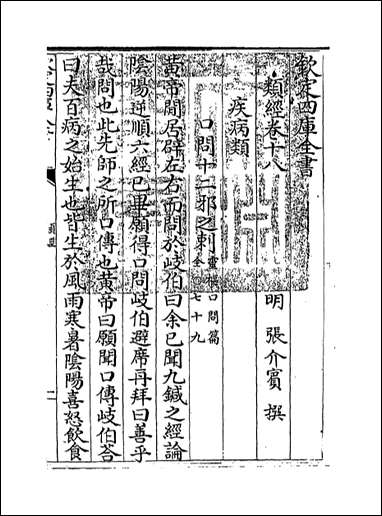 欽定四庫全書
類經卷十八
明 張介賓 撰
疾病類
口問十二邪之刺 靈樞口問篇 全 七十九
黃帝閒居辟左右而問於岐伯曰余已聞九鍼之經論
陰陽逆順六經已畢願得口問岐伯避席再拜曰善乎
哉問也此先師之所口傳也黃帝曰願聞口傳岐伯荅
曰夫百病之始生也皆生於風雨寒暑陰陽喜怒飲食